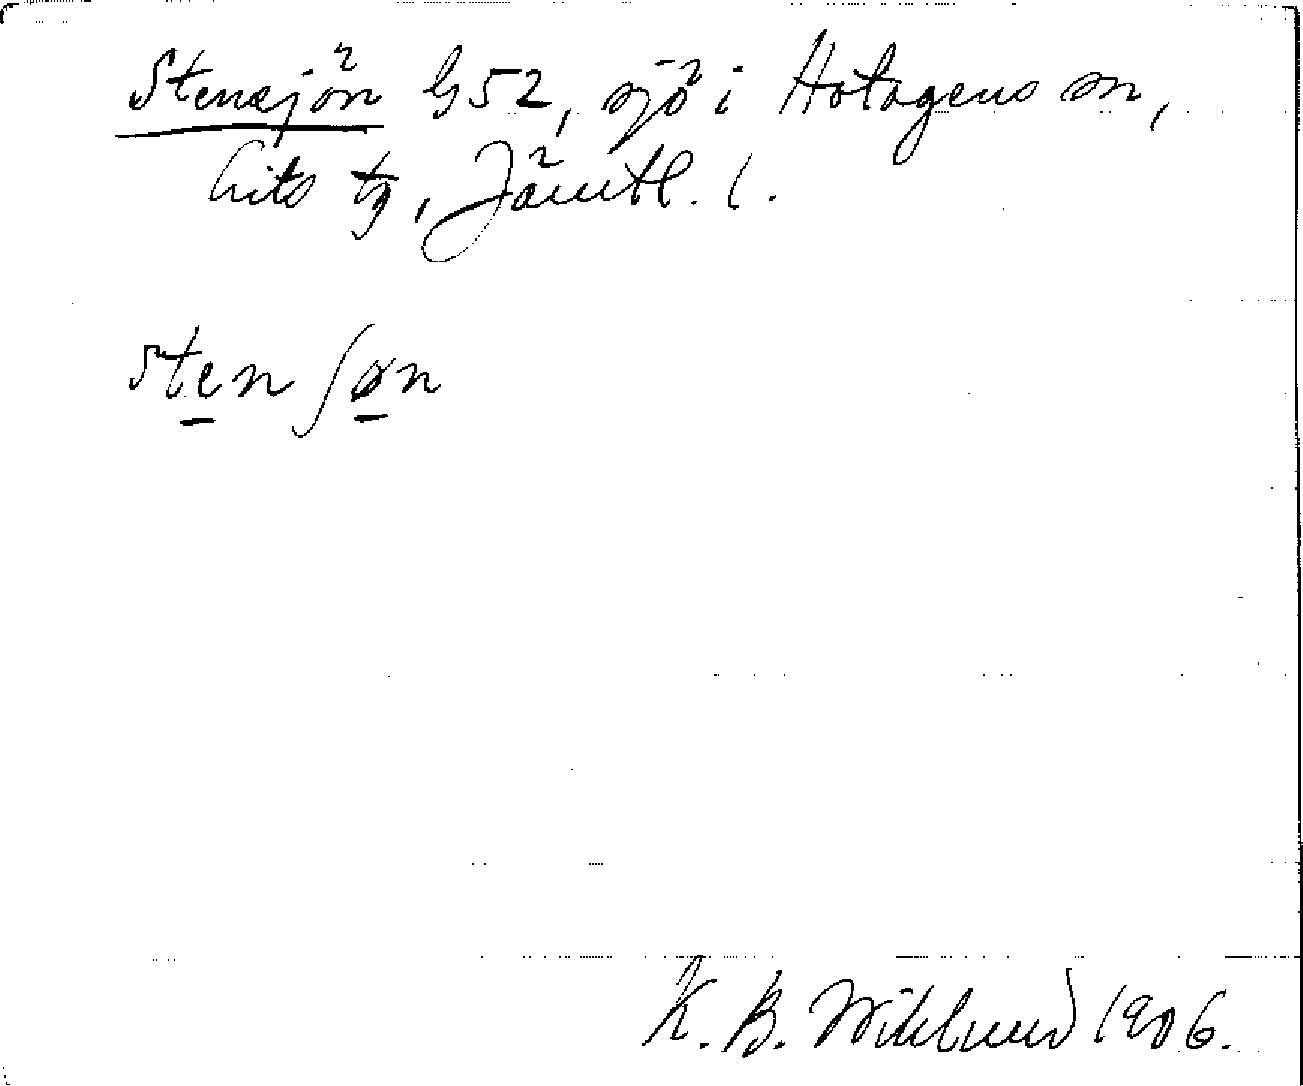 Stensjön G52, sjö i Hotagens sn,
Lits tg, Jämtl. l.
sten ʃøn
K. B. Wiklund 1906.